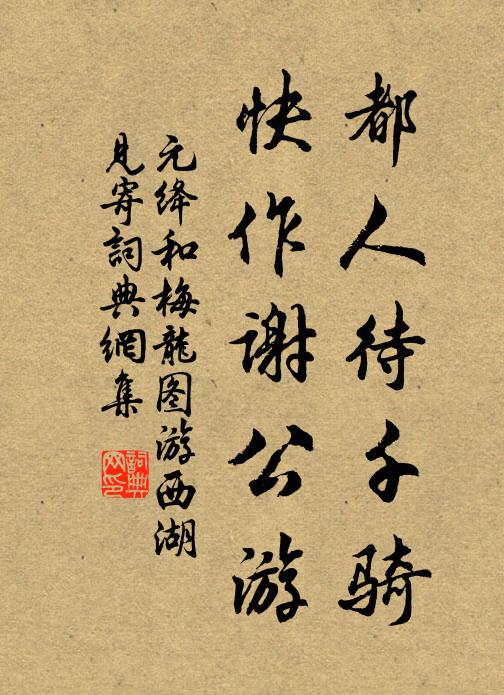 都人待千骑
快作谢公游
元绛和梅龍图游西湖
見寄詞典網集
詞典网印